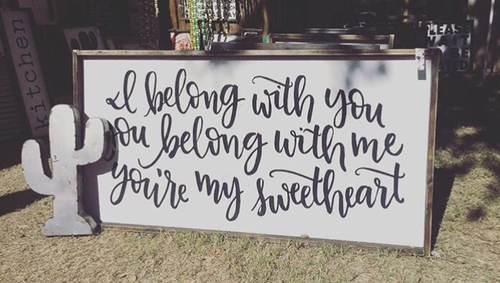 I belong with you
you belong with me
you're my sweetheart
kitchen